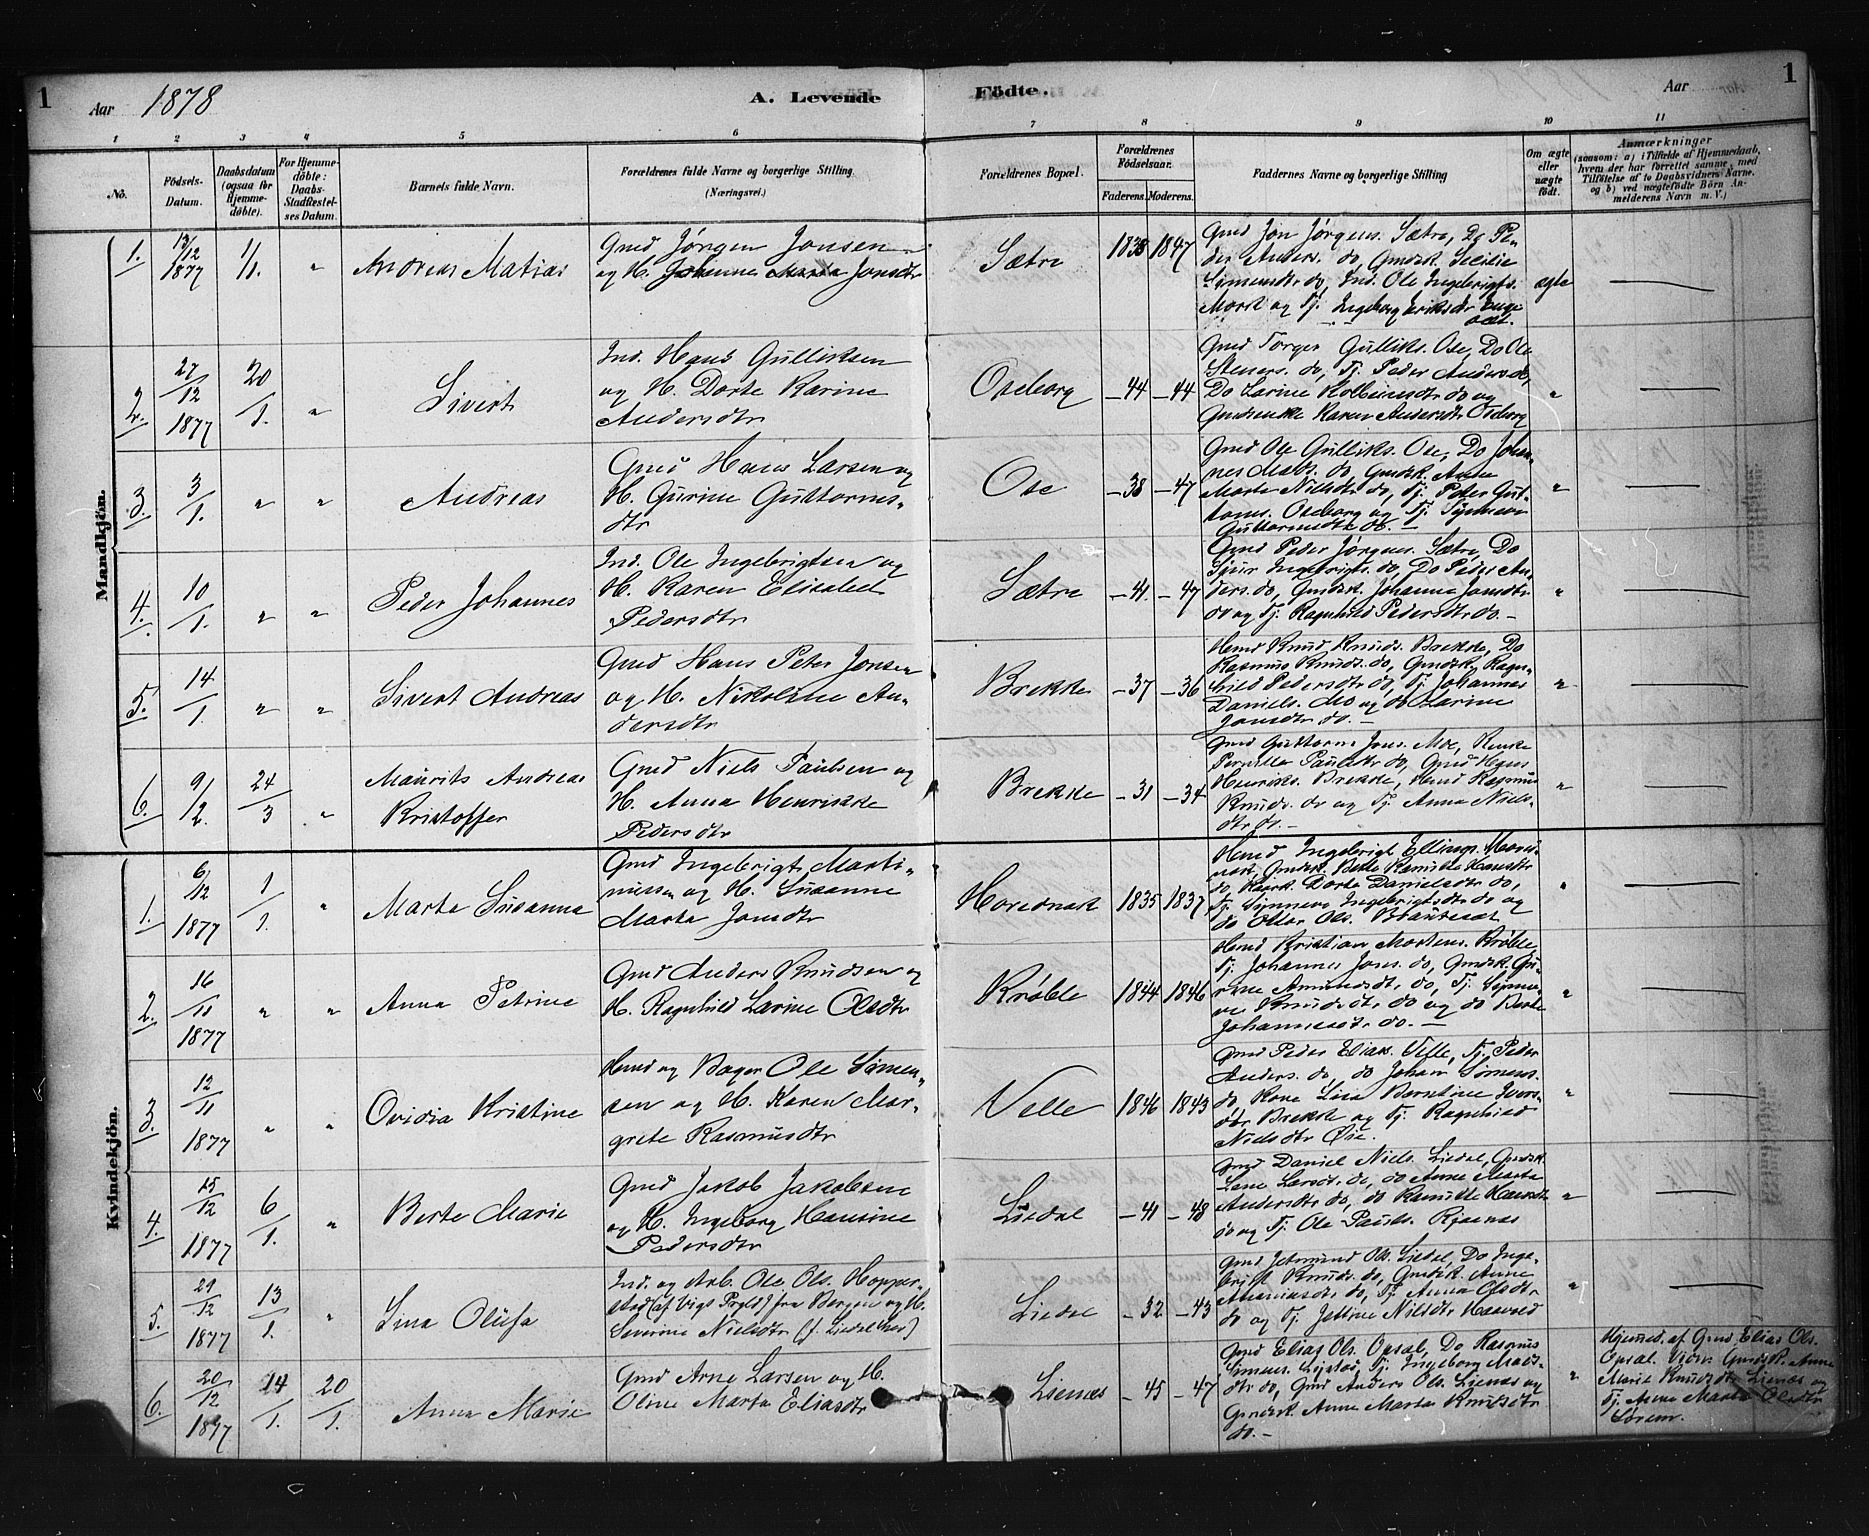 1
Aar 1878
A. Levende
Födte.
Aar
1
1 2 3 4 5 6 7 8 9 10 11
No.
Födsels-
Datum.
Daabsdatum
(ogsaa for
Hjemme-
döbte).
For Hjemme-
döbte:
Daabs-
Stadfæstel-
ses Datum.
Barnets fulde Navn.
Forældrenes fulde Navne og borgerlige Stilling
(Næringsvei.)
Forældrenes Bopæl.
Forældrenes
Födselsaar.
Faderens. Moderens.
Faddernes Navne og borgerlige Stilling
Om ægte
eller
uægte
födt.
Anmærkninger
(saasom: a) i Tilfælde af Hjemmedaab,
hvem der har forrettet samme, med
Tilföielse af to Daabsvidners Navne.
og b) ved uægtefödte Börn An-
melderens Navn m. V.)
Mandkjön.
1.
12/12
1877
1/1.
"
Andreas Matias
Gmd Jørgen Jonsen
og H. Johanne Marta Jonsdtr
Sætre
1838 1847
Gmd Jon Jørgens. Sætre, Do Pe-
der Anders. do, Gmdsk. Secilie
Simensdtr do, Ind. Ole Ingebrigts.
Mork og Tj. Ingeborg Eriksdtr
ægte
2.
27/12
1877
20/1.
"
Sivert
Ind. Hans Gulliksen
og H. Dorte Karine
Andersdtr
Oseborg
-44 -44
Gmd Torger Gulliks. Ose, Do Ole
Steners. do, Tj. Peder Anders do,
Do Larine Kolbeinsdtr do og
Gmdsenke Karen Andersdtr Oseborg
"
3.
3/1.
"
"
Andreas
Gmd Hans Larsen og
H. Gurine Guttorms-
dtr
Ose
-38 -47
Gmd Ole Gulliks. Ose, Do Johan-
nes Mads. do, Gmdsk. Anne
Marte Nielsdtr do, Tj. Peter Gut-
torms. Oseborg og Tj. Synneve
Guttormsdtr do. -
"
4.
10/1.
"
"
Peder Johannes
Ind. Ole Ingebrigtsen og
H. Karen Elisabet
Pedersdtr
Sætre
-41. -47
Gmd Peder Jørgens. Sætre, Do
Sjur Ingebrigts. do, Do Peder An-
ders. do, Gmdsk. Johanne Jonsdtr
do og Tj. Ragnhild Pedersdtr do. -
"
5.
14/1.
"
"
Sivert Andreas
Gmd Hans Peter Jonsen
og H. Nikoline An-
dersdtr
Brekke
-37 -36
Hmd Knud Knuds. Brekke, Do
Rasmus Knuds. do, Gmdsk. Ragn-
hild Pedersdtr do, Tj. Johannes
Daniels. Mo og do Larine
Jonsdtr do. -
"
6.
9/2.
24/3
"
Maurits Andreas
Kristoffer
Gmd Niels Paulsen og
H. Anna Henrikke
Pedersdtr
Brekke
-31 -34
Gmd Guttorm Jons. Moe, Enke
Pernille Paulsdtr do, Gmd Hans
Henriks. Brekke, Hmd Rasmus
Knuds. do og Tj. Anna Niels-
dtr do. -
"
Kvindekjön.
1.
6/12
1877
1/1.
"
Marte Susanna
Gmd Ingebrigt Marti-
nussen og H. Susanne
Marta Jonsdtr
Hovednak
1835 1837
Hmd Ingebrigt Ellings. Hoved-
nak, Gmdsk. Berte Rasmusdtr
do, Kaarsk. Dorte Danielsdtr do,
Tj. Synneve Ingebrigtsdtr do og
do Ottar Ols.
"
2.
16/11
1877
"
"
Anna Petrine
Gmd Anders Knudsen og
H. Ragnhild Larine Olsdtr
Krøble
1844 1846
Hmd Kristian Mortens. Krøble,
Tj. Johannes Jons. do, Gmdsk. Gu-
rine Amundsdtr, do, Tj. Synne-
ve Knudsdtr do og do Berte
Johannesdtr do. -
"
3.
12/11
1877
"
"
Ovidia Kristine
Hmd og Bager Ole Simen-
sen og H. Karen Mar-
grete Rasmusdtr
Velle
1846 1843
Gmd Peder Elias. Velle, Tj. Peder
Anders. do, do Johan Simens.
do Kone Lina Berntine Ivers-
dtr Brekke og Tj. Ragnhild
Nielsdtr Øie.
"
4.
15/12
1877
6/1.
"
Berte Marie
Gmd Jakob Jakobsen
og H. Ingeborg Hansine
Pedersdtr
Liedal
-41 -48
Gmd Daniel Niels. Liedal, Gmdsk.
Lene Larsdtr do, do Anne Marte
Andersdtr do, do Rasmine Hansdtr
do og Tj. Ole Pauls.
"
5.
29/12
1877
13/1.
"
Sina Olufa
Ind. og Arb. Ole Ols. Hopper-
stad (af Vigs Prgld) fra Bergen og H.
Severine Nielsdtr (f. Liedal her)
Liedal
-32 -43
Gmd Jetmund Ols. Liedal, Do Inge-
brigt Knuds. do, Gmdsk. Anne
do, Tj. Anna Olsdtr
do og Tj. Jettine Nielsdtr
"
6.
20/12
1877
14/1.
20/1.
Anna Marie
Gmd Arne Larsen og H.
Oline Marta Eliasdtr
Lienæs
-45 -47
Gmd Elias Ols. Opsal, Do Rasmus
Simens. Tj. Ingeborg Mads-
dtr do, Gmd Anders Ols. Lienæs og
Gmdsk. Anne Marta Knudsdtr
do. -
"
Hjemmed. af Gmd Elias Ols.
Opsal. Vidn. Gmdsk. Anne
Marie Knudsdtr Lienæs og
Tj. Anne Marta Olsdtr